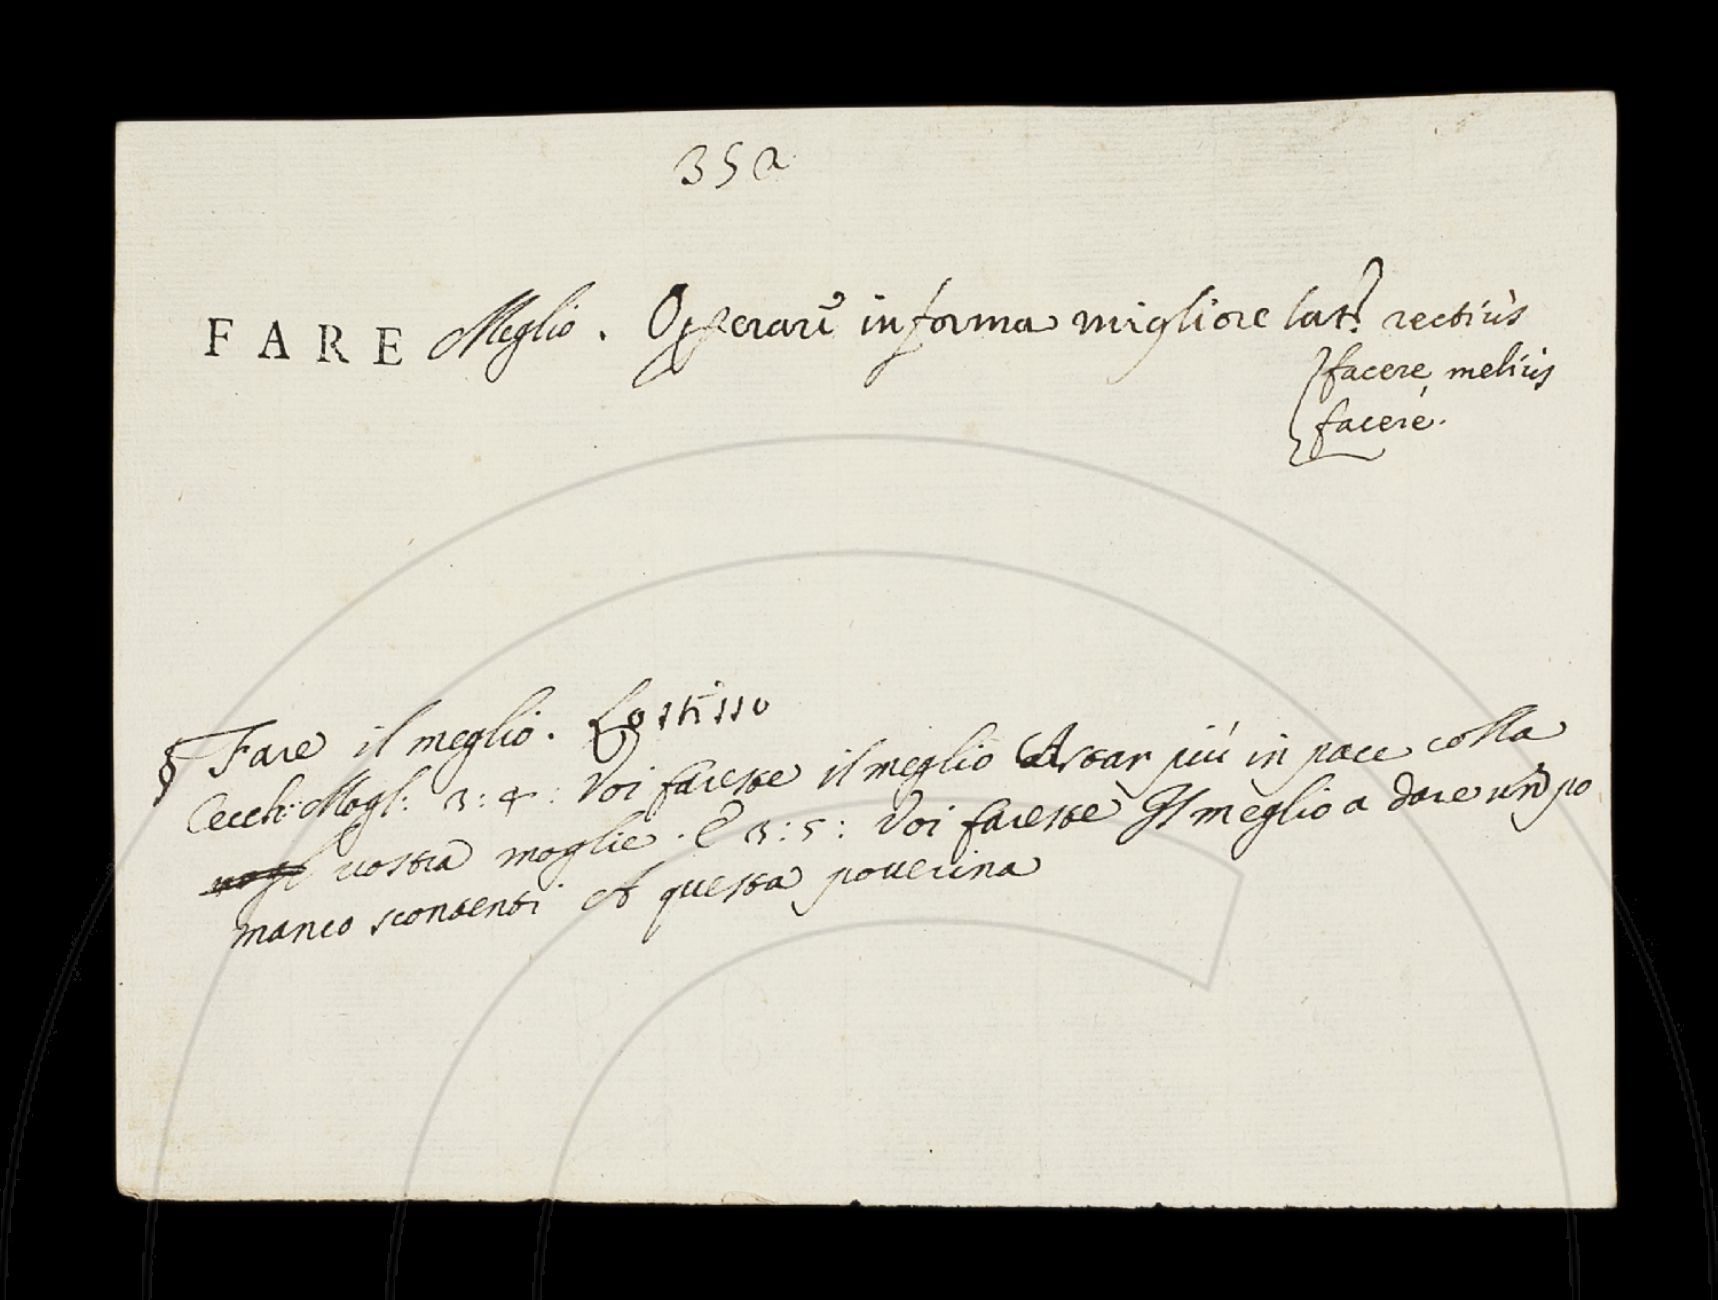 35a
FARE Meglio. Operare in forma migliore lat: rectiùs
facere, meliùs
facere.
§ Fare il meglio. Lo stisso
Cecch: Mogl: 3:4: Voi fareste il meglio A star più in pace colla
vostra moglie. E 3:5: Voi fareste Il meglio a dare un po
manco scontenti A questa pouerina